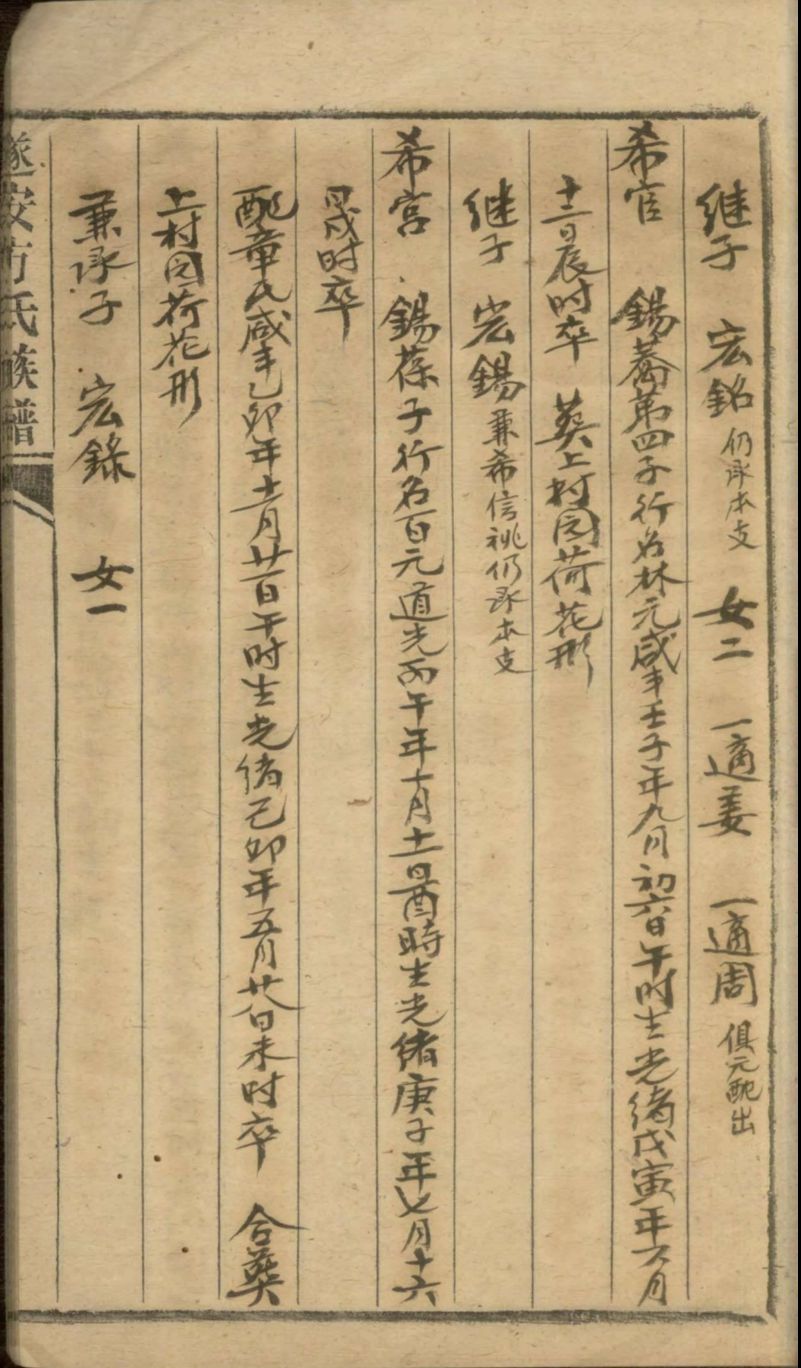 继子 宏銘 仍承本支 女二 一適姜 一適周 俱元配出
希官 錫蕃第四子行名林元咸丰壬子年九月初六日午时生光绪戊寅年六月
十二日辰时卒 葬上村园荷花形
继子 宏錫 兼希信祧仍承本支
希宫 錫葆子行名百元道光丙午年十月十一日酉時生光绪庚子年七月十六
日戌时卒
配章氏咸丰乙卯年十二月廿一日午时生光绪己卯年五月廿八日未时卒 合葬
上村园荷花形
兼承子 宏錄 女一
遂安方氏族譜